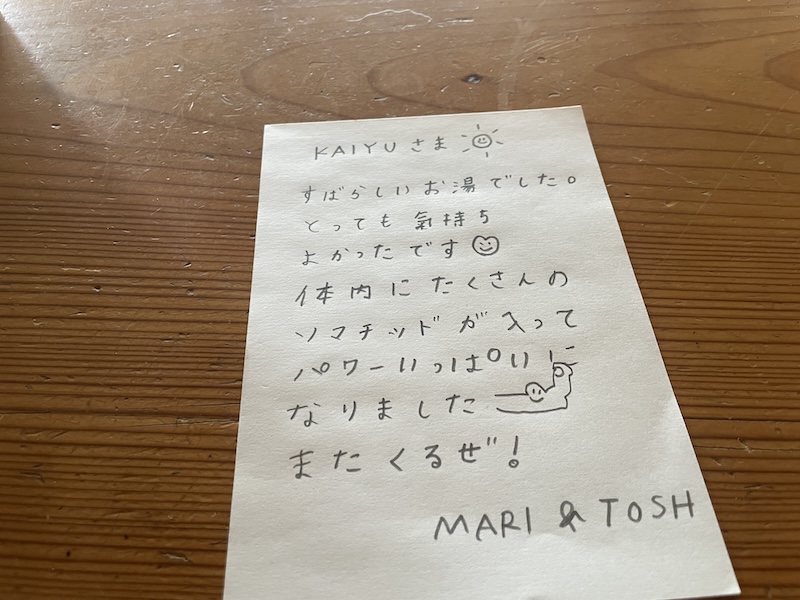 KAIYU さま
すばらしいお湯でした。
とっても氣持ち
よかったです
体内にたくさんの
ソマチッドが入って
パワーいっぱい
なりました
またくるぜ!
MARI & TOSH